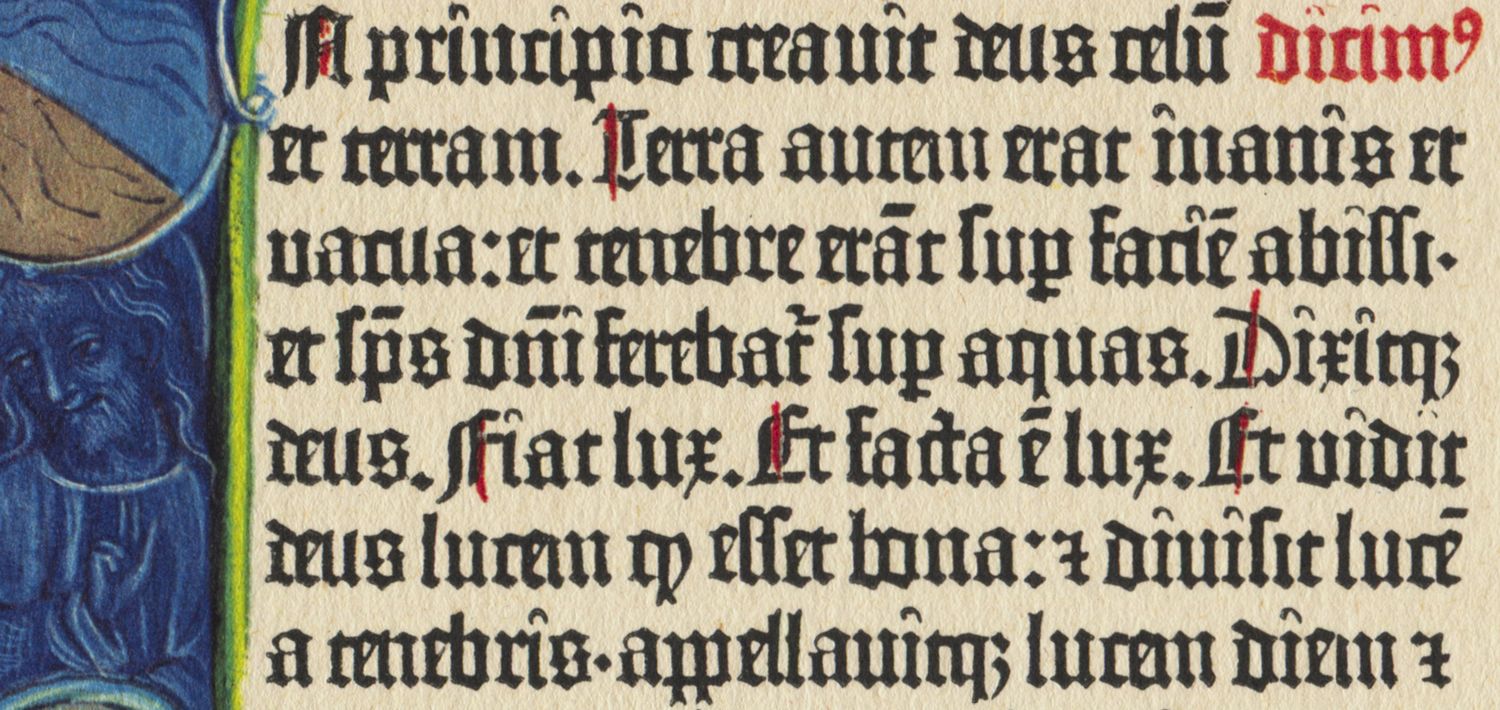 N principio creauit deus celū dicimꝰ
et terram. Terra autem erat inanis et
vacua: et tenebre erāt sup̱ faciē abissi·
et sp̄s dn̄i ferebat᷑ sup̱ aquas. Dixitqꝫ
deus. Fiat lux. Et facta ē lux. Et vidit
deus lucem ꝙ esset bona: ⁊ diuisit lucē
a tenebris· appellauitqꝫ lucem diem ⁊